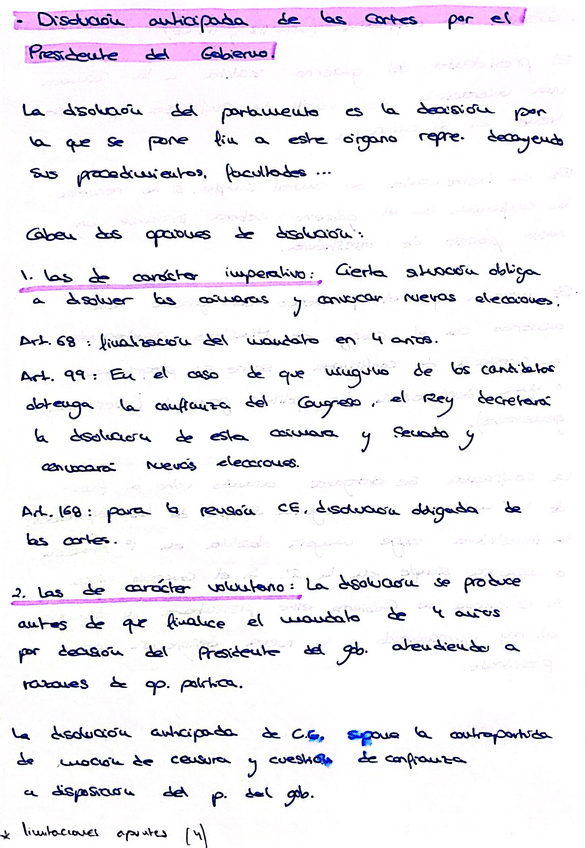 - Disolución anticipada de las Cortes por el
Presidente del Gobierno.
La disolución del parlamento es la decisión por
la que se pone fin a este órgano repre. decayendo
sus procedimientos, facultades ...
Caben dos opciones de disolución:
1. las de carácter imperativo: Cierta situación obliga
a disolver las cámaras y convocar nuevas elecciones.
Art. 68: finalización del mandato en 4 años.
Art. 99: En el caso de que ninguno de los candidatos
obtenga la confianza del Congreso, el Rey decretará
la disolución de esta cámara y Senado y
convocará nuevas elecciones.
Art. 168: para la revisión CE, disolución obligada de
las cortes.
2. las de carácter voluntario: La disolución se produce
antes de que finalice el mandato de 4 años
por decisión del Presidente del gob. atendiendo a
razones de op. política.
La disolución anticipada de C.G. supone la contrapartida
de moción de censura y cuestión de confianza
a disposición del p. del gob.
* limitaciones apuntes (4)